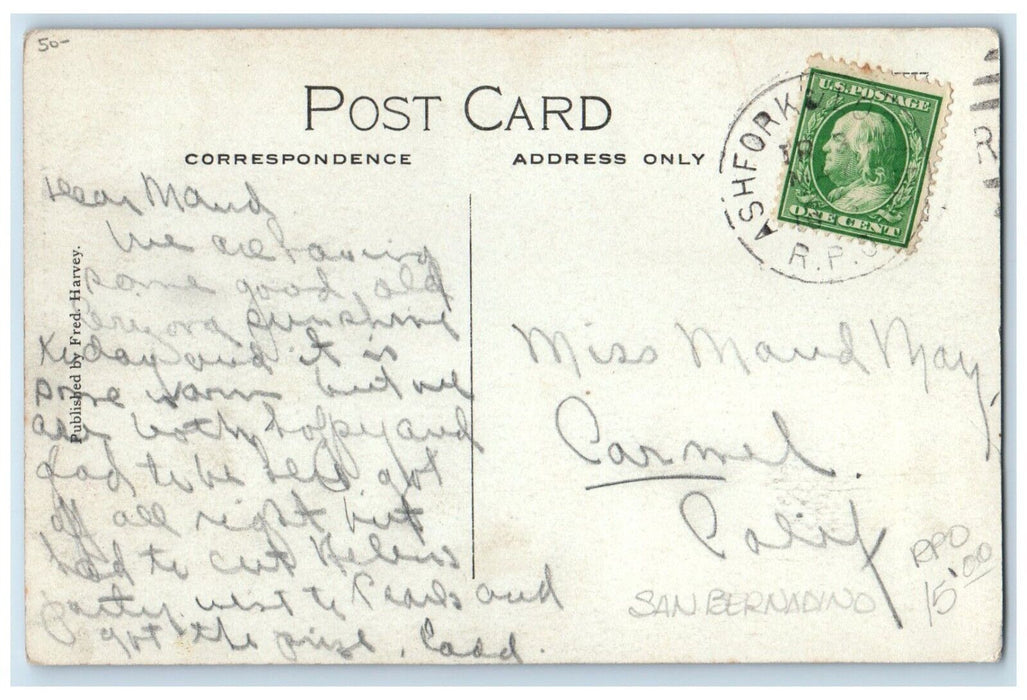 50-
POST CARD
CORRESPONDENCE
ADDRESS ONLY
U.S. POSTAGE
ONE CENT
ASHFORK
R.P.O.
R
Published by Fred. Harvey.
Dear Maud
We are having
some good old
sunshine
today and it is
some warm but we
are both happy and
glad to be here got
off all right but
had to cut Helens
party went to Pearls and
got the prize.
Miss Maud May
Carmel.
Calif
SAN.BERNADINO
RPO
15.00